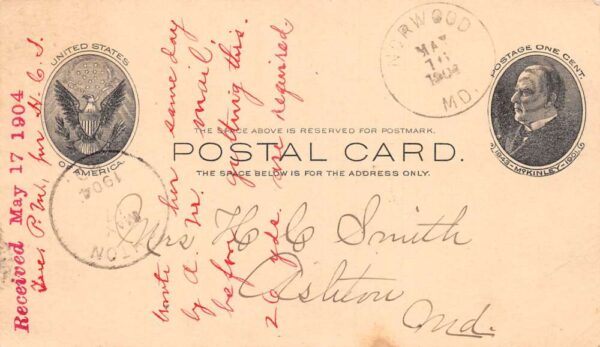 UNITED STATES
OF AMERICA
NORWOOD
MAY
1904
MD.
POSTAGE ONE CENT.
1843-McKINLEY-1901
THE SPACE ABOVE IS RESERVED FOR POSTMARK.
POSTAL CARD.
THE SPACE BELOW IS FOR THE ADDRESS ONLY.
1904
TON
Mrs H C Smith
Ashton
Md.
Received May 17 1904
P.M. for H. C. S.
wrote her same day
by a.m. mail
before getting this.
26 yds are required